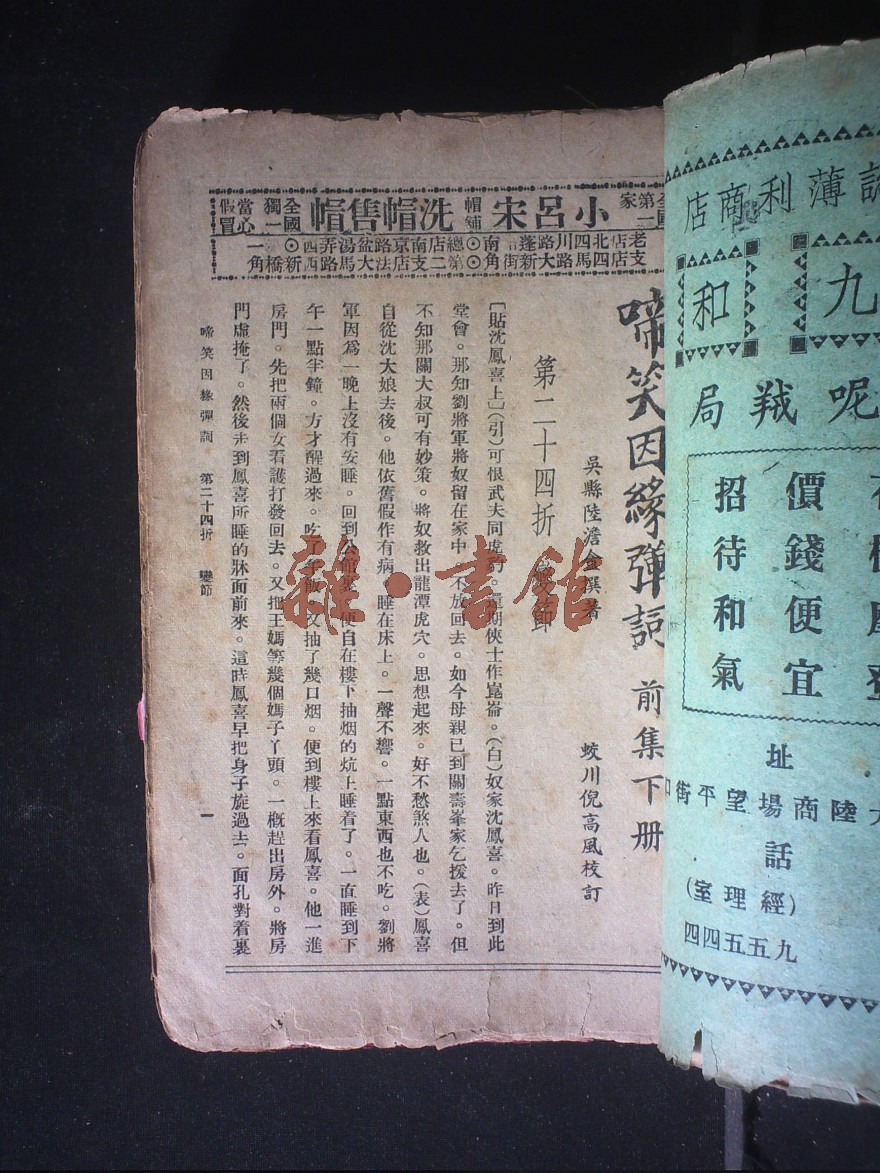 薄利商店
九和
呢羢局
價錢便宜
招待和氣
址
陸商場望平街口
話
(經理室)
九五五四四
第一家
小呂宋帽鋪
洗帽售帽
全國獨一
當心假冒
啼笑因緣彈詞 前集下册
吳縣陸澹盦撰著
蛟川倪高風校訂
第二十四折 變節
〔貼沈鳳喜上〕(引)可恨武夫同虎豹。還期俠士作崑崙。(白)奴家沈鳳喜。昨日到此
堂會。那知劉將軍將奴留在家中。不放回去。如今母親已到關壽峯家乞援去了。但
不知那關大叔可有妙策。將奴救出龍潭虎穴。思想起來。好不愁煞人也。(表)鳳喜
自從沈大娘去後。他依舊假作有病。睡在床上。一聲不響。一點東西也不吃。劉將
軍因爲一晚上沒有安睡。回到公館裏。便自在樓下抽烟的炕上睡着了。一直睡到下
午一點半鐘。方才醒過來。吃了午飯。又抽了幾口烟。便到樓上來看鳳喜。他一進
房門。先把兩個女看護打發回去。又把王媽等幾個媽子丫頭。一概趕出房外。將房
門虛掩了。然後走到鳳喜所睡的牀面前來。這時鳳喜早把身子旋過去。面孔對着裏
啼笑因緣彈詞 第二十四折 變節 一
雜·書館